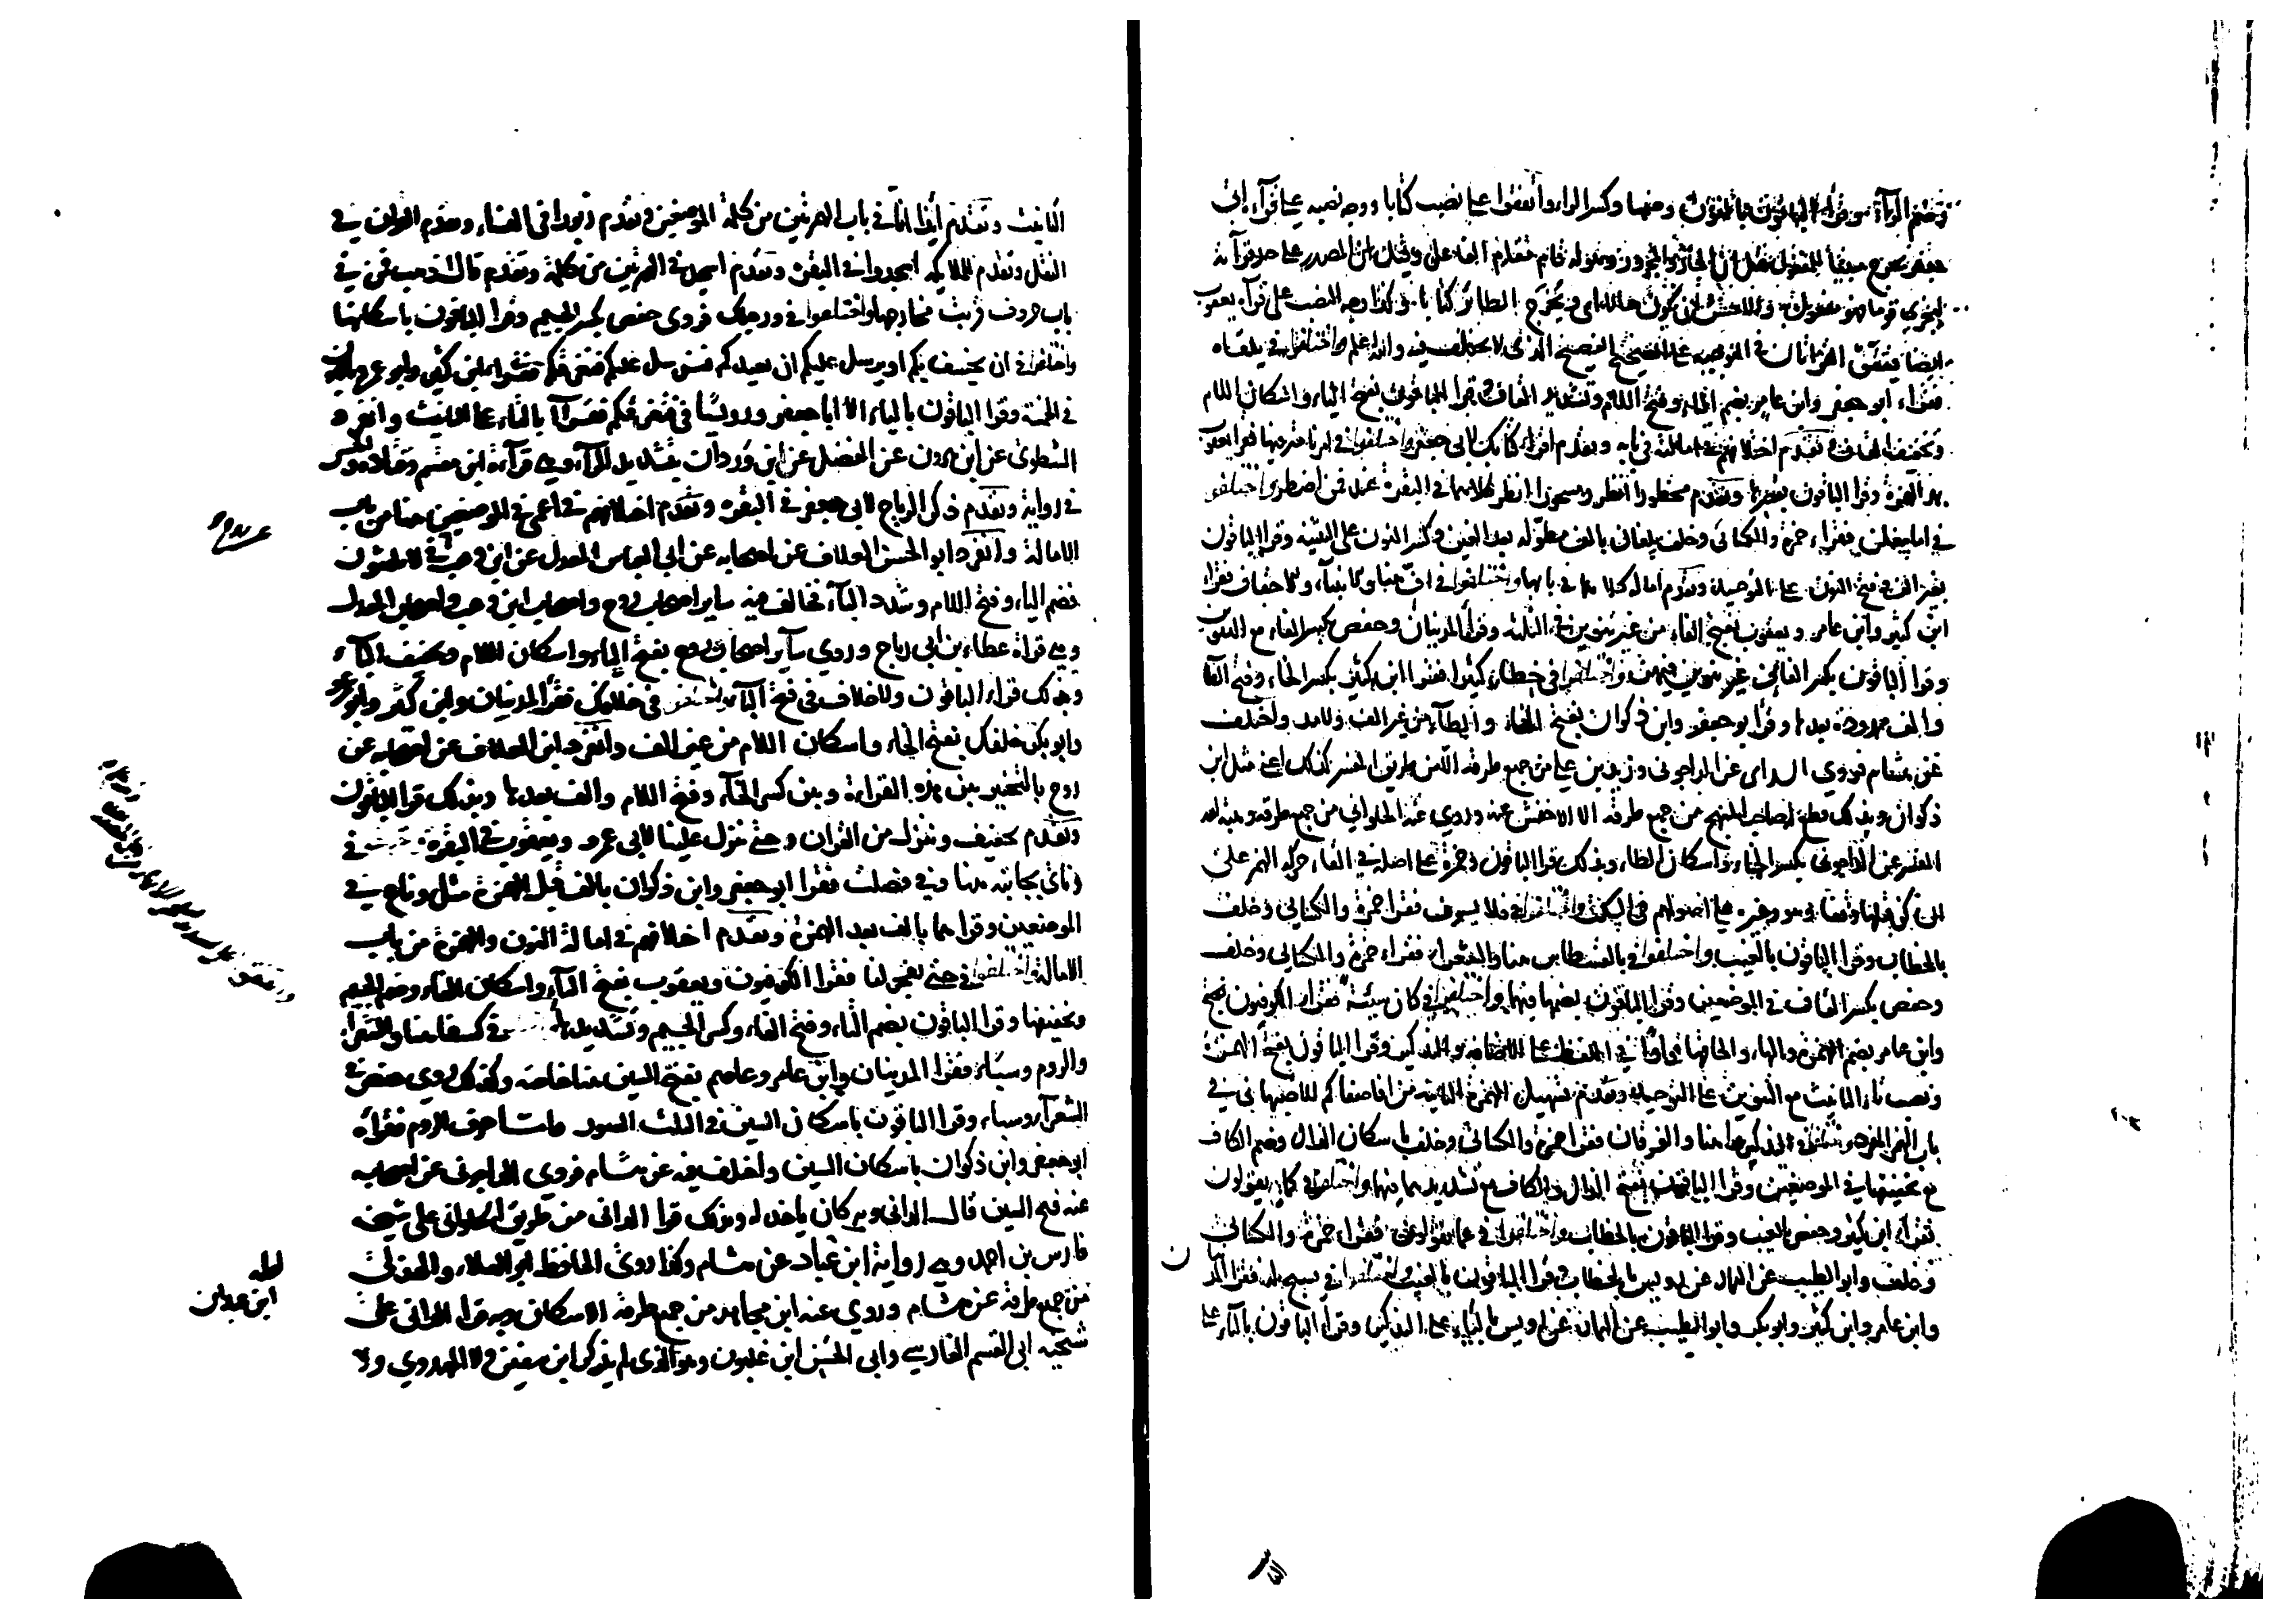 وضم الرآء وقرا الباقون بالنون وضمها وكسر الرا واتفقوا على نصب كتابا ووجه نصبه على قرآة ابي
جعفر يخرج مبنيا للمفعول قيل ان الجار والمجرور وهو له قام مقام الفاعل وقيل ان المصدر على حد قرآته
ليجزي قوما فهو مفعول به والاحسن ان يكون حالا اي ويخرج الطائر كتابا وكذا وجه النصب على قرآة يعقوب
ايضا فتتفق القراتان في التوجيه على الصحيح الفصيح الذي لا يختلف فيه والله اعلم واختلفوا في يلقاه
فقراء ابو جعفر وابن عامر بضم الياء وفتح اللام وتشديد القاف وقرا الباقون بفتح الياء واسكان اللام
وتخفيف القاف وتقدم اختلافهم في امالته في بابه وتقدم اقرا كتابك لابي جعفر واختلفوا في امرنا مترفيها فقرا يعقوب
بمد الهمزة وقرا الباقون بقصرها وتقدم محظورا انظر ومسحورا انظر كلاهما في البقرة عند فمن اضطر واختلفوا
في اما يبلغن فقراء حمزة والكسائي وخلف يبلغان بالف مطولة بعد الغين وكسر النون على التثنية وقرا الباقون
بغير الف وفتح النون على التوحيد وتقدم امالة كلاهما في بابها واختلفوا في اف هنا والانبياء والاحقاف فقرا
ابن كثير وابن عامر ويعقوب بفتح الفاء من غير تنوين في الثلثة وقرا المدنيان وحفص بكسر الفاء مع التنوين
وقرا الباقون بكسر الفاء من غير تنوين فيهن واختلفوا في خطاء كبيرا فقرا ابن كثير بكسر الخاء وفتح الطا
والف ممدودة بعدها وقرا ابو جعفر وابن ذكوان بفتح الخاء والطاء من غير الف ولا مد واختلف
عن هشام فروي الداجوني وزيد بن علي من جميع طرقه الا من طريق المفسر كذلك اعني مثل ابن
ذكوان وبذلك قطع لصاحب المبهج من جميع طرقه الا الاخفش عنه وروي عنه الحلواني من جميع طرقه وهبة الله
المفسر عن الداجوني بكسر الخاء واسكان الطاء وبذلك قرا الباقون وحمزة على اصله في القاء حركة الهمز على
الساكن قبلها وقفا وهو وغيره على اصولهم في السكت واختلفوا في فلا يسرف فقرا حمزة والكسائي وخلف
بالخطاب وقرا الباقون بالغيب واختلفوا في بالقسطاس هنا والشعرا فقراء حمزة والكسائي وخلف
وحفص بكسر القاف في الموضعين وقرا الباقون بضمها فيهما واختلفوا في كان سيئة فقرا الكوفيون
وابن عامر بضم الهمزة والهاء والحاقها واوا في اللفظ على الاضافة والتذكير وقرا الباقون بفتح الهمزة
ونصب تاء التانيث مع التنوين على التوحيد وتقدم تسهيل الهمزة الثانية من افاصفاكم للاصبهاني في
باب الهمز المفرد واختلفوا في ليذكروا هنا والفرقان فقرا حمزة والكسائي وخلف باسكان الذال وضم الكاف
مع تخفيفها في الموضعين وقرا الباقون بفتح الذال والكاف مع تشديدهما فيهما واختلفوا في كما يقولون
فقرا ابن كثير وحفص بالغيب وقرا الباقون بالخطاب واختلفوا في عما يقولون فقراء حمزة والكسائي
وخلف وابو الطيب عن التمار عن رويس بالخطاب وقرا الباقون بالغيب واختلفوا في يسبح له فقرا المدنيان
وابن عامر وابن كثير وابو بكر وابو الطيب عن التمار عن رويس بالياء على التذكير وقرا الباقون بالتاء على
١٠٢
التانيث وتقدم أيذا انا في باب الهمزتين من كلمة الموضعين وتقدم زبورا في النساء وتقدم القران في
النقل وتقدم للملايكة اسجدوا في البقرة وتقدم ااسجد في الهمزتين من كلمة وتقدم قال اذهب فمن في
باب حروف قربت مخارجها واختلفوا في ورجلك فروى حفص بكسر الجيم وقرا الباقون باسكانها
واختلفوا في ان يخسف بكم او يرسل عليكم ان يعيدكم فنرسل عليكم فنغرقكم فقرا ابن كثير وابو عمرو بالنون
في الخمسة وقرا الباقون بالياء الا ابا جعفر ورويسا في فتغرقكم فقرآ بالتاء على التانيث وانفرد
الشطوي عن ابن هرون عن الفضل عن ابن وردان بتشديد الرآء وهي قرآءة ابن مقسم وقتادة والحسن
في رواية وتقدم ذكر الرياح لابي جعفر في البقرة وتقدم اختلافهم في اعمى في الموضعين هنا من باب
الامالة وانفرد ابو الحسن العلاف عن اصحابه عن ابي العباس المعدل عن ابن وهب في لا يلبثون
بضم الياء وفتح اللام وشدد الباء فخالف فيه ساير اصحاب روح واصحاب ابن وهب واصحاب المعدل
وهي قراة عطاء بن ابي رباح وروى سآير اصحاب روح بفتح الياء واسكان اللام وتخفيف الباء
وبذلك قراء الباقون ولا خلاف في فتح الباء واختلفوا في خلافك فقرا المدنيان وابن كثير وابو عمرو
وابو بكر خلفك بفتح الخاء واسكان اللام من غير الف وانفرد ابن العلاف عن اصحابه عن
روح بالتخيير بين هذه القراءة وبين كسر الخآء وفتح اللام والف بعدها وبذلك قرا الباقون
وتقدم تخفيف وننزل من القران وحتى تنزل علينا لابي عمرو ويعقوب في البقرة واختلفوا في
وناى بجانبه هنا وفي فصلت فقرا ابو جعفر وابن ذكوان بالف قبل الهمزة مثل وناع في
الموضعين وقراهما بالف بعد الهمزة وتقدم اختلافهم في امالة النون والهمزة من باب
الامالة واختلفوا في حتى تفجر لنا فقرا الكوفيون ويعقوب بفتح التآء واسكان الفاء وضم الجيم
وتخفيفها وقرا الباقون بضم التاء وفتح الفاء وكسر الجيم وتشديدها واختلفوا في كسفا هنا والشعرا
والروم وسباء فقرا المدنيان وابن عامر وعاصم بفتح السين هنا خاصة وكذلك روى حفص في
الشعرآء وسباء وقرا الباقون باسكان السين في الثلث السور واما حرف الروم فقراه
ابو جعفر وابن ذكوان باسكان السين واختلف فيه عن هشام فروى الداجوني عن اصحابه
عنه فتح السين قال الداني وبه كان ياخذ له وبذلك قرا الداني من طريق الحلواني على شيخه
فارس بن احمد وهي رواية ابن عباد عن هشام وكذا روى الحافظ ابو العلاء والهذلي
من جميع طرقه عن هشام وروى عنه ابن مجاهد من جميع طرقه الاسكان وبه قرا الداني على
شيخيه ابي القسم الفارسي وابي الحسن ابن غلبون وهو الذي لم يذكر ابن سفين ولا المهدوي ولا
لعله
ابن عبدان